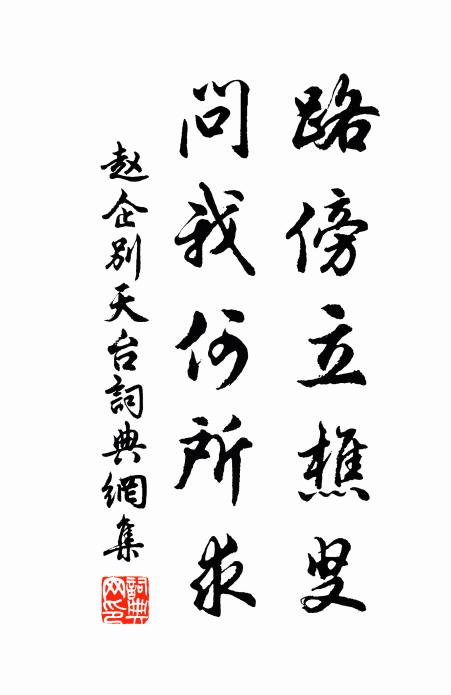 路傍立樵叟
問我何所求
赵企别天台詞典網集
詞典网印